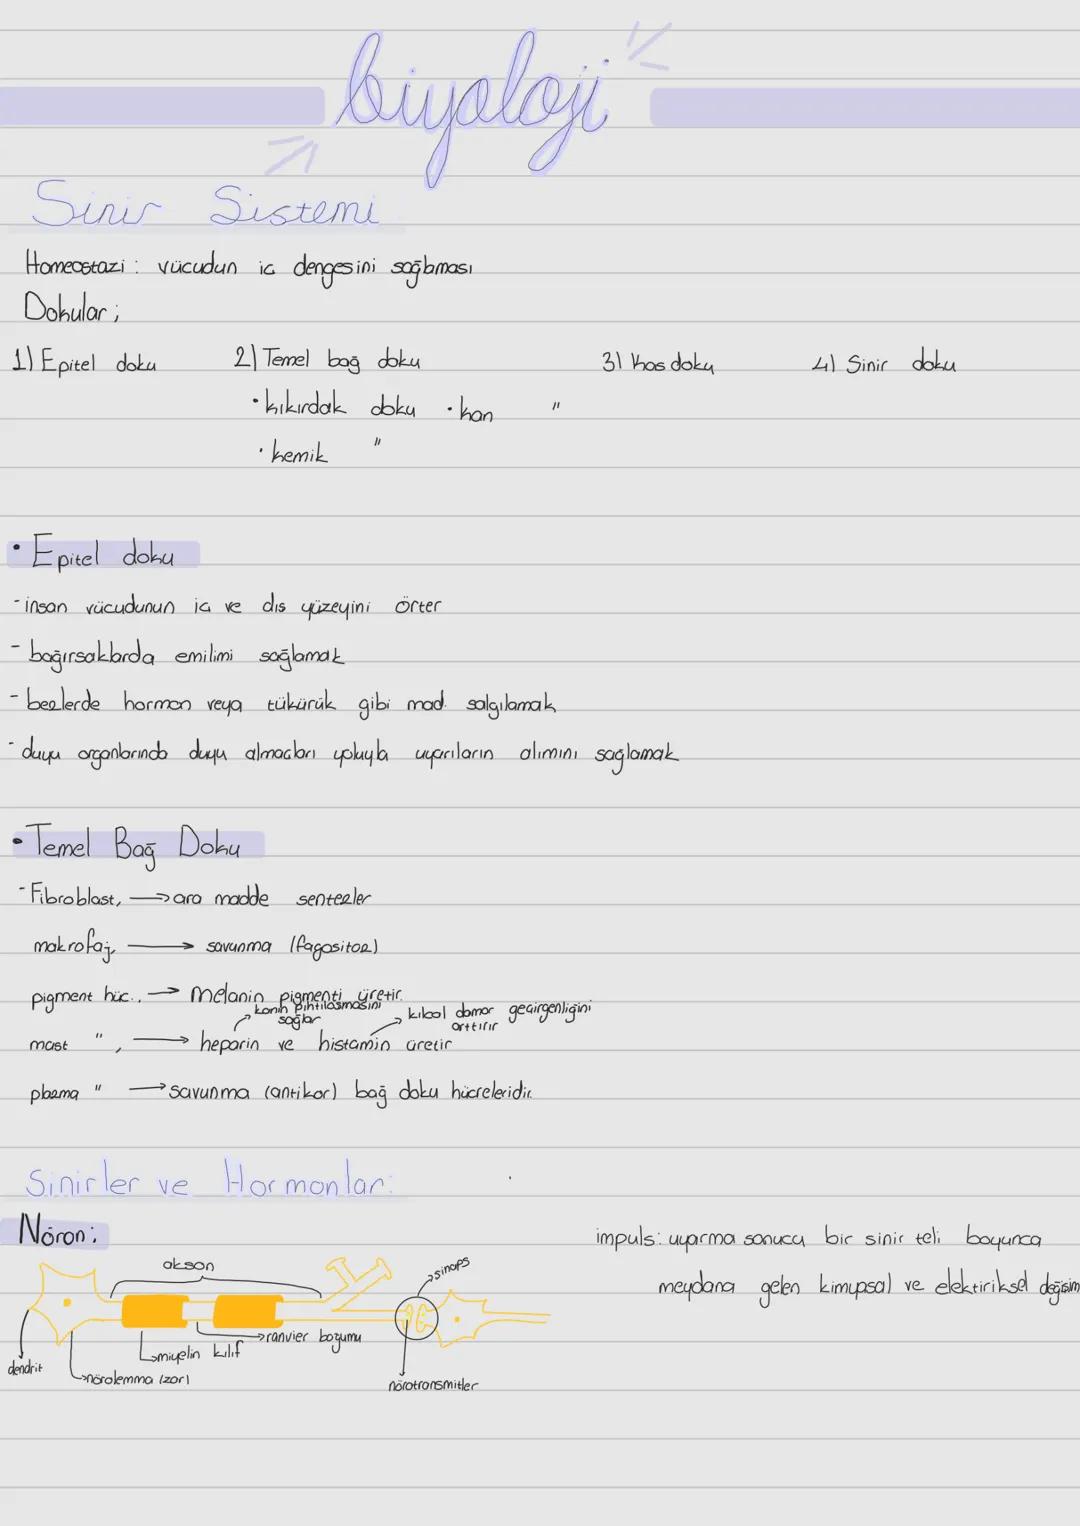 biyoloji
Sinir Sistemi
Homeostazi: vücudun iç dengesini sağlaması
Dokular;
1) Epitel doku 2) Temel bağ doku 3) Kas doku 4) Sinir doku
• kıkırdak doku • kan "
• kemik "
• Epitel doku
- insan vücudunun iç ve dış yüzeyini örter
- bağırsaklarda emilimi sağlamak
- bezlerde hormon veya tükürük gibi mad. salgılamak
- duyu organlarında duyu almaçları yoluyla uyarıların alımını sağlamak
• Temel Bağ Doku
- Fibroblast, → ara madde sentezler
makrofaj, → savunma (fagositoz)
pigment hüc., → Melanin pigmenti üretir.
kanın pıhtılaşmasını sağlar
kılcal damar geçirgenliğini arttırır
mast ", → heparin ve histamin üretir
plazma " → savunma (antikor) bağ doku hücreleridir.
Sinirler ve Hormonlar:
Nöron;
impuls: uyarma sonucu bir sinir teli boyunca
meydana gelen kimyasal ve elektiriksel değişim
akson
→ sinaps
→ ranvier boğumu
→ miyelin kılıf
dendrit
→ nörolemma (zar)
nörotransmitler